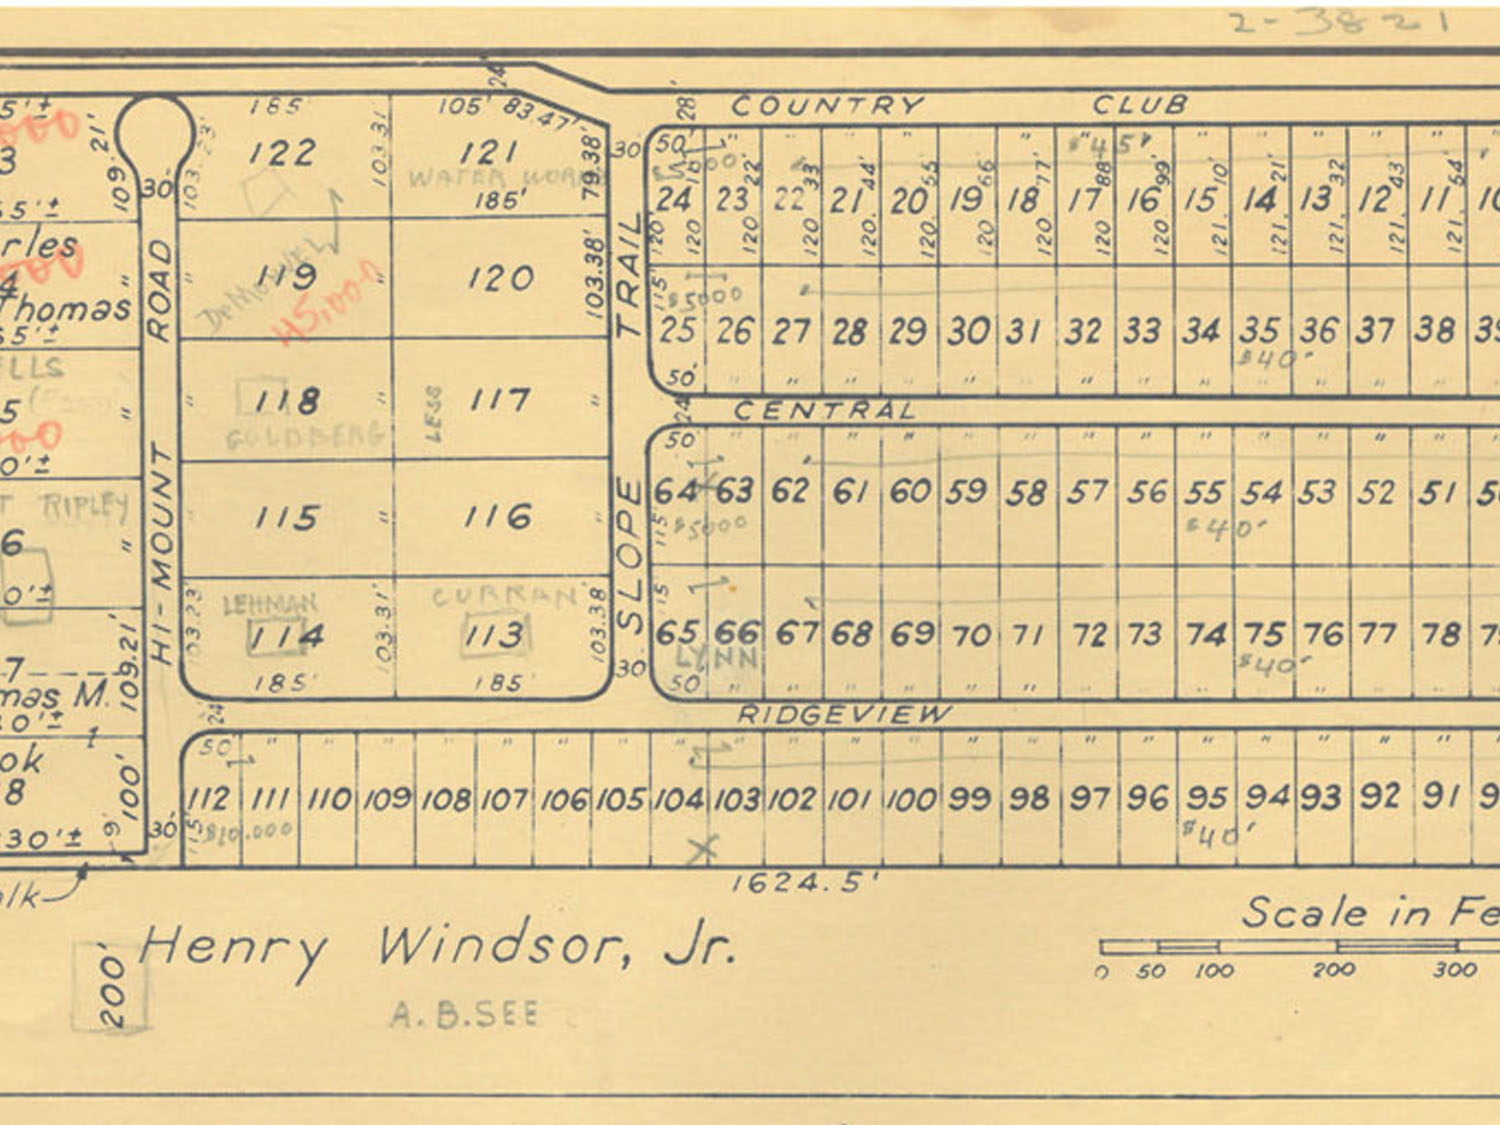 2-3821
24'
28'
COUNTRY CLUB
5'±
000
3
55'±
109.21'
30'
103.23'
185'
122
103.31'
105' 83.47'
121
WATER WORKS
185'
79.38'
30'
50' " " " " " " " " " " " " "
$45'
$5000
24 23 22 21 20 19 18 17 16 15 14 13 12 11 10
120' 120.11' 120.22' 120.33' 120.44' 120.55' 120.66' 120.77' 120.88' 120.99' 121.10' 121.21' 121.32' 121.43' 121.54'
rles
000
4
Thomas
55'±
"
ROAD
"
119
"
45,000
120
103.38'
TRAIL
115'
$5000
25 26 27 28 29 30 31 32 33 34 35 36 37 38 39
$40'
50' " " " " " " " " " " " " "
ELLS
5
000
0'±
"
"
118
GOLDBERG
"
LESS
117
"
24'
CENTRAL
50' " " " " " " " " " " " " "
64 63 62 61 60 59 58 57 56 55 54 53 52 51 50
115'
$5000
$40'
T RIPLEY
6
0'±
"
HI-MOUNT
115
"
116
"
SLOPE
LEHMAN
114
103.23'
185'
103.31'
CURRAN
113
103.38'
185'
30'
115'
65 66 67 68 69 70 71 72 73 74 75 76 77 78 79
LYNN
$40'
50' " " " " " " " " " " " " "
7
mas M.
40'±
109.21'
1
24'
RIDGEVIEW
50' " " " " " " " " " " " " " " " " " " " " "
ok
8
30'±
100'
9'
30'
115'
112 111 110 109 108 107 106 105 104 103 102 101 100 99 98 97 96 95 94 93 92 91 9
$10,000
$40'
X
1624.5'
alk
Henry Windsor, Jr.
200'
A.B.SEE
Scale in Fe
0 50 100 200 300